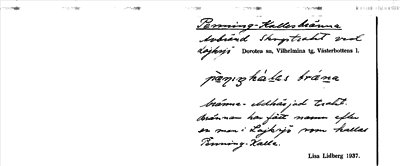 Penning-Kallesbränna
Avbränd skogstrakt ved
Lajksjö Dorotea sn, Vilhelmina tg, Västerbottens l.
bränna - eldhärjad trakt.
Brännan har fått namn efter
en man i Lajksjö som kallas
Penning-Kalle.
Lisa Lidberg 1937.